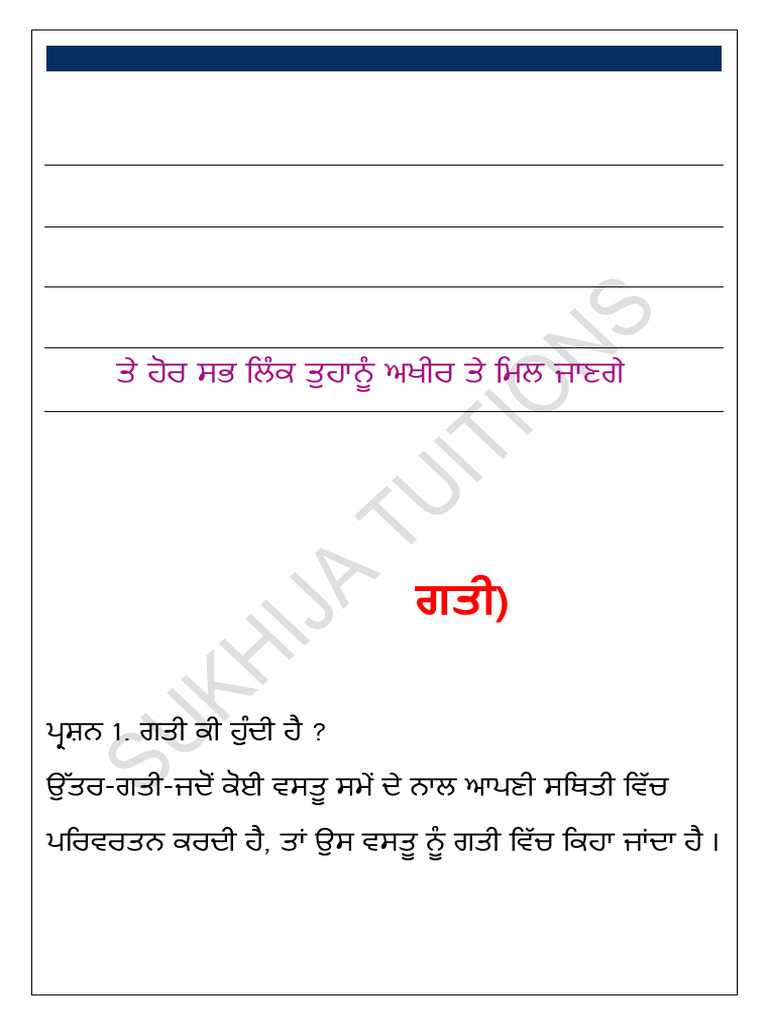 ਤੇ ਹੋਰ ਸਭ ਲਿੰਕ ਤੁਹਾਨੂੰ ਅਖੀਰ ਤੇ ਮਿਲ ਜਾਣਗੇ
SUKHIJA TUITIONS
ਗਤੀ)
ਪ੍ਰਸ਼ਨ 1. ਗਤੀ ਕੀ ਹੁੰਦੀ ਹੈ ?
ਉੱਤਰ-ਗਤੀ-ਜਦੋਂ ਕੋਈ ਵਸਤੂ ਸਮੇਂ ਦੇ ਨਾਲ ਆਪਣੀ ਸਥਿਤੀ ਵਿੱਚ
ਪਰਿਵਰਤਨ ਕਰਦੀ ਹੈ, ਤਾਂ ਉਸ ਵਸਤੂ ਨੂੰ ਗਤੀ ਵਿੱਚ ਕਿਹਾ ਜਾਂਦਾ ਹੈ ।